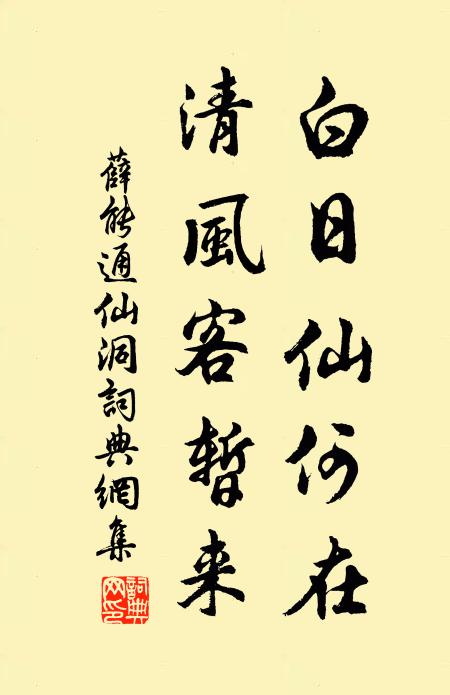 白日仙何在
清風客暫来
薛能通仙洞詞典網集
詞典网印